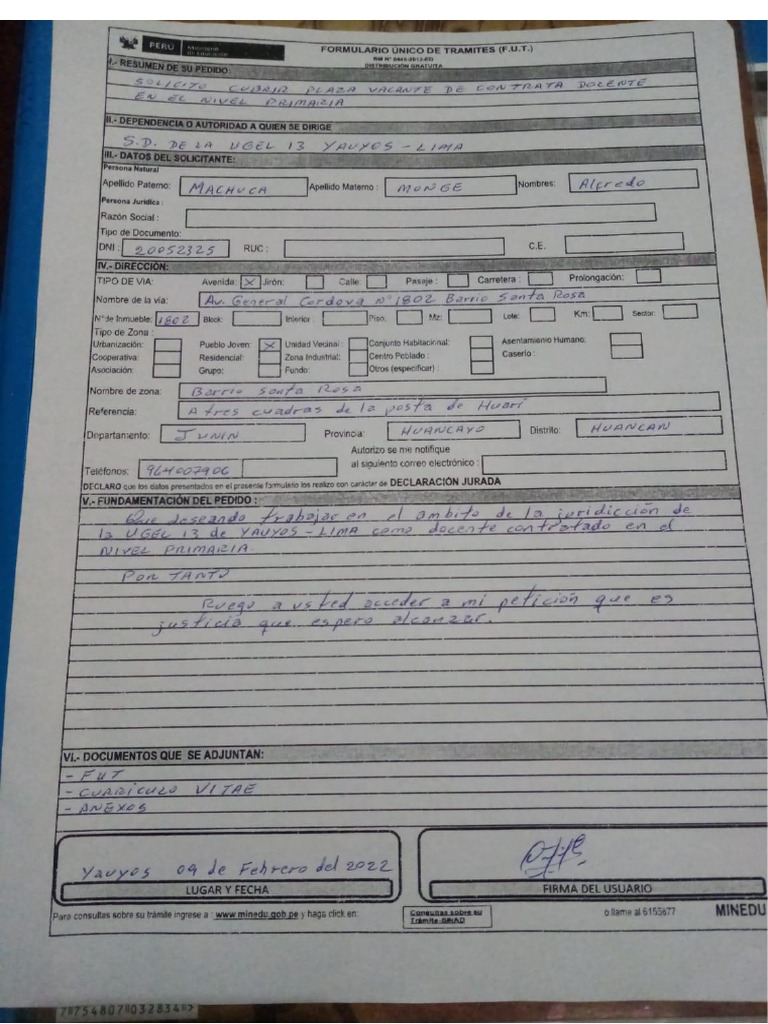 PERÚ Ministerio de Educación
FORMULARIO ÚNICO DE TRAMITES (F.U.T.)
RM N° 0445-2012-ED
DISTRIBUCIÓN GRATUITA
I.- RESUMEN DE SU PEDIDO:
SOLICITO CUBRIR PLAZA VACANTE DE CONTRATA DOCENTE
EN EL NIVEL PRIMARIA
II.- DEPENDENCIA O AUTORIDAD A QUIEN SE DIRIGE
S.D. DE LA UGEL 13 YAUYOS - LIMA
III.- DATOS DEL SOLICITANTE:
Persona Natural
Apellido Paterno: MACHUCA Apellido Materno : MONGE Nombres: Alfredo
Persona Jurídica :
Razón Social :
Tipo de Documento:
DNI : 20052325 RUC : C.E.
IV.- DIRECCIÓN:
TIPO DE VIA: Avenida: X Jirón: Calle: Pasaje : Carretera : Prolongación:
Nombre de la vía: Av. General Cordova N° 1802 Barrio Santa Rosa
N° de Inmueble: 1802 Block: Interior : Piso: Mz: Lote: Km: Sector:
Tipo de Zona :
Urbanización: Pueblo Joven: X Unidad Vecinal : Conjunto Habitacional: Asentamiento Humano:
Cooperativa: Residencial: Zona Industrial: Centro Poblado : Caserío :
Asociación: Grupo: Fundo: Otros (especificar) :
Nombre de zona: Barrio Santa Rosa
Referencia: A tres cuadras de la posta de Huarí
Departamento: JUNIN Provincia: HUANCAYO Distrito: HUANCAN
Autorizo se me notifique
Teléfonos: 964007906 al siguiente correo electrónico :
DECLARO que los datos presentados en el presente formulario los realizo con carácter de DECLARACIÓN JURADA
V.- FUNDAMENTACIÓN DEL PEDIDO :
Que deseando trabajar en el ámbito de la juridicción de
la UGEL 13 de YAUYOS - LIMA como docente contratado en el
NIVEL PRIMARIA.
POR TANTO
Ruego a usted acceder a mi petición que es
justicia que espero alcanzar.
VI.- DOCUMENTOS QUE SE ADJUNTAN:
- FUT
- CURRÍCULO VITAE
- ANEXOS
Yauyos 09 de Febrero del 2022
LUGAR Y FECHA FIRMA DEL USUARIO
Para consultas sobre su trámite ingrese a : www.minedu.gob.pe y haga click en: Consultas sobre su Trámite-SINAD o llame al 6155877 MINEDU